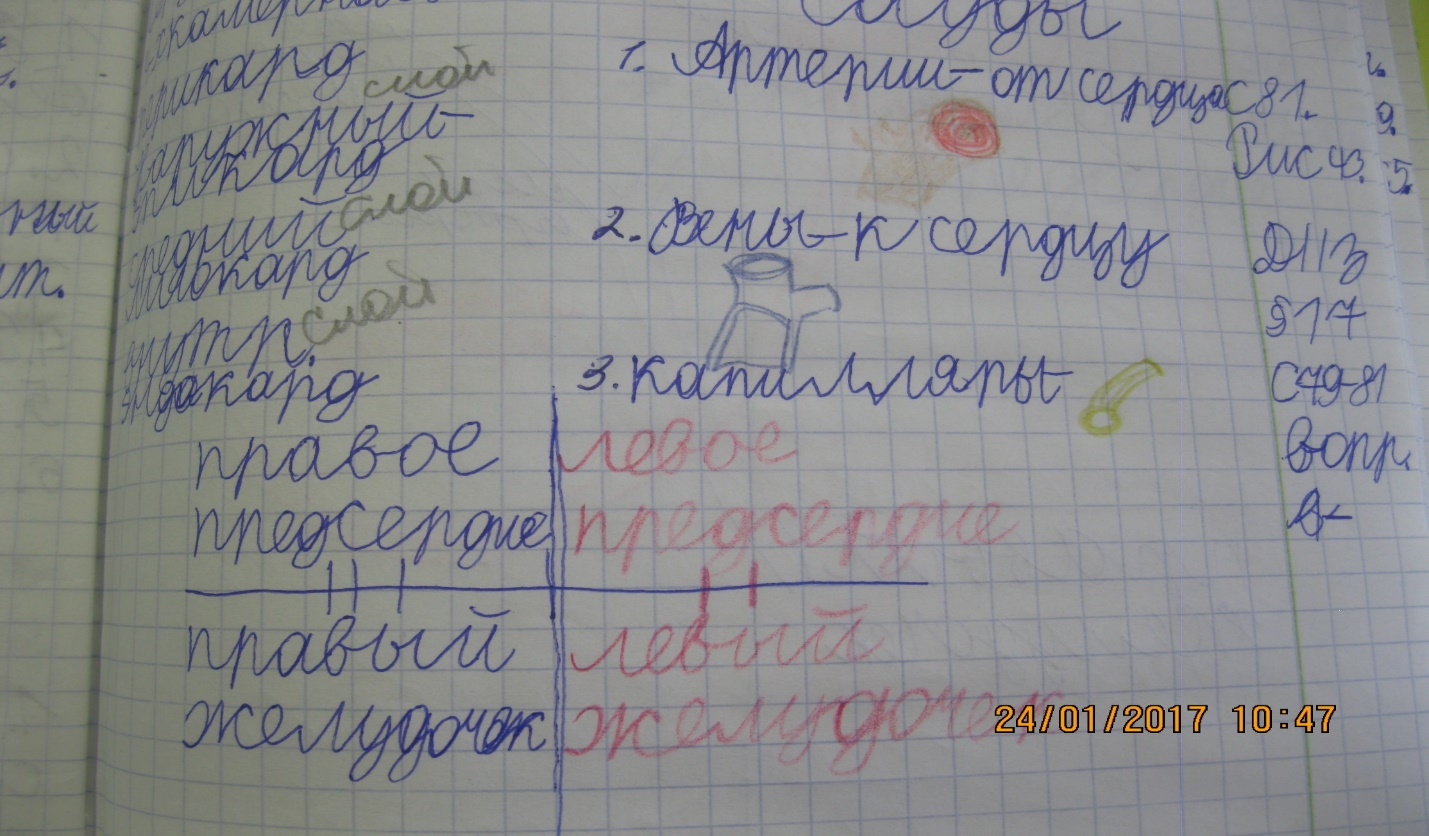 перикард
слой
наружный-
эпикард
слой
средний
миокард
слой
внутр.
эндокард
1. Артерии-от сердца
2. Вены-к сердцу
3. Капилляры-
С81.
Рис 43.
Д/З
§17
С79-81
вопр.
правое
предсердие
левое
предсердие
правый
желудочок
левый
желудочек
24/01/2017 10:47